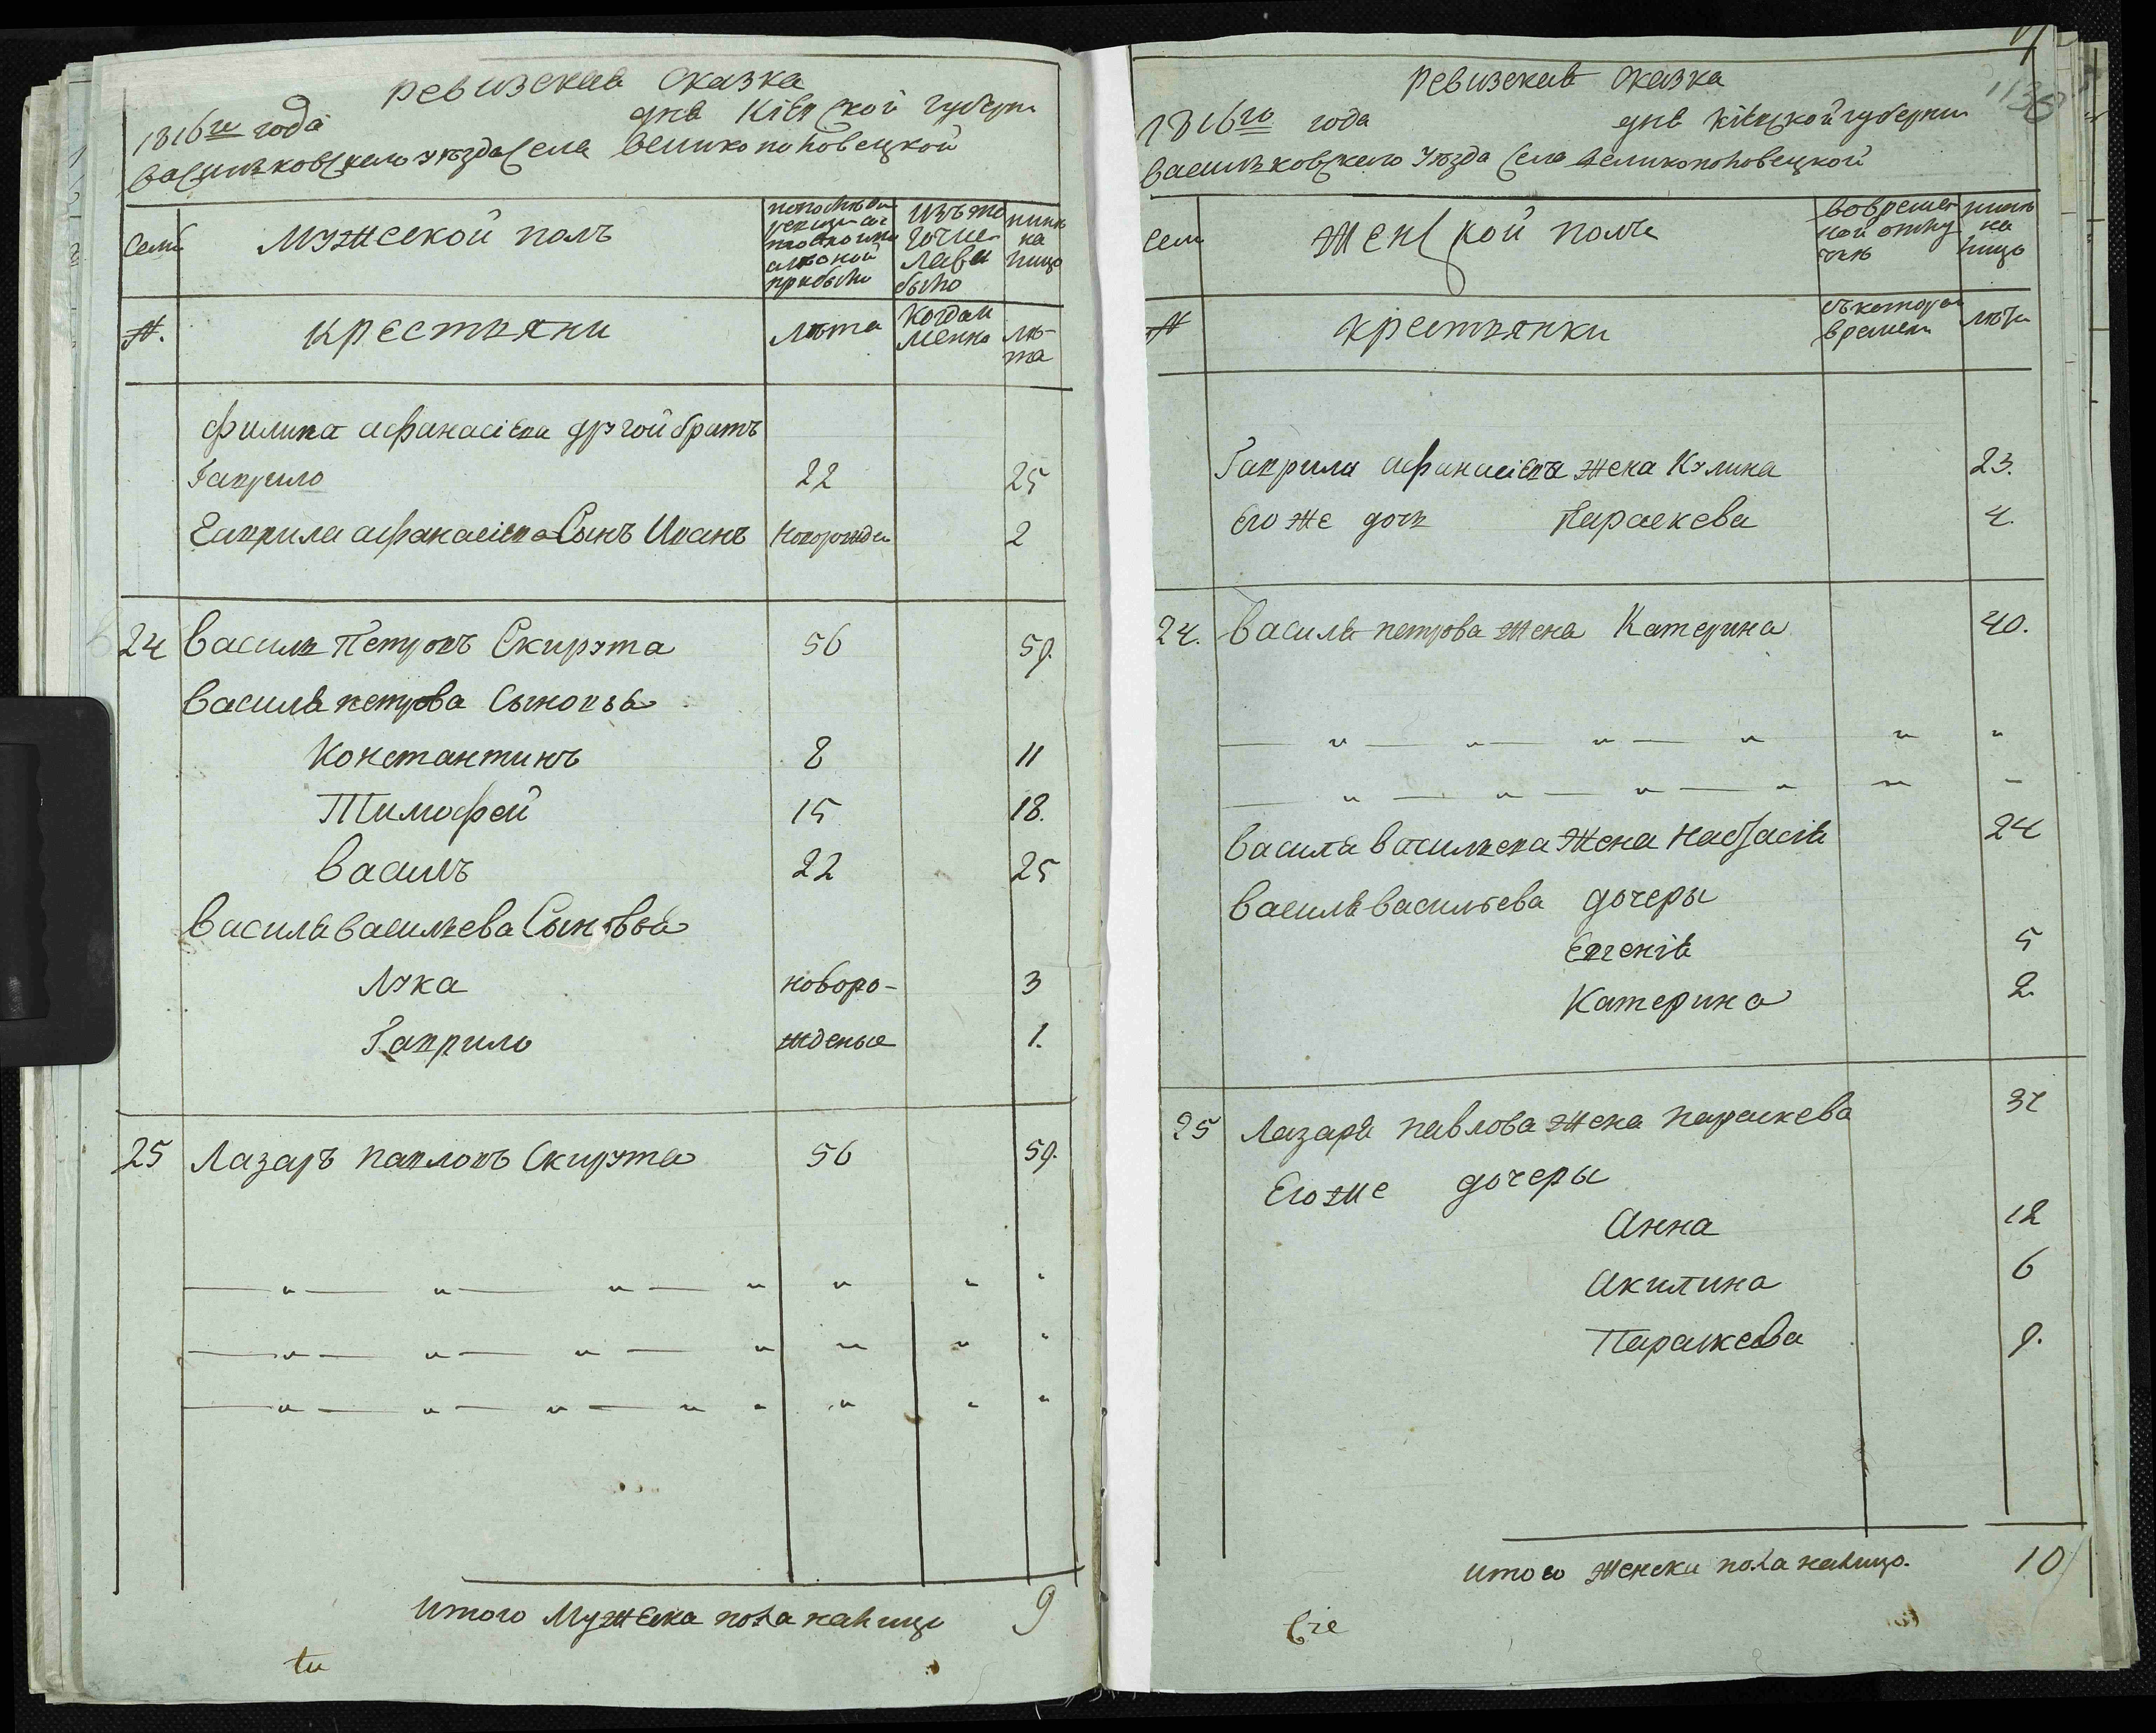 ревизская сказка
1816го года дня Кіевской губерн
васильковского уезда Села великополовецкой
Семи
мужеской полъ
изъ то
было
ныне
на
лицо
№.
крестьяни
лѣта
Когда и
менно
лѣ-
та
филипа афанасіева другой братъ
Гаврило 22 25
Гаврила афанасіева Сынъ Иванъ новорожден 2
24 василь Петровъ Скирута 56 59.
василя петрова Сыновья
Константинъ 8 11
Тимофей 15 18.
василь 22 25
василя васильева Сыновья
Лука новоро- 3
Гаврило жденые 1.
25 Лазаръ павловъ Скирута 56 59.
итого Мужеска пола налицо 9
ревизская сказка
1136
1816го года дня Кіевской губернии
васильковского уезда Села великополовецкой
Семи
женской полъ
вовремен
ной отлу
чкѣ
ныне
на
лицо
№
крестьянки
съ котора
времени
лѣта
Гаврила афанасіева жена Кулина 23.
Его же дочь Параскева 4.
24. василя петрова жена Катерина 40.
василя васильева жена настасія 24
василя васильева дочеры
Евгенія 5
Катерина 2
25 Лазаря павлова жена параскева 32
Его же дочеры
Анна 12
Акилина 6
Параскева 9.
итого женска пола налицо. 10